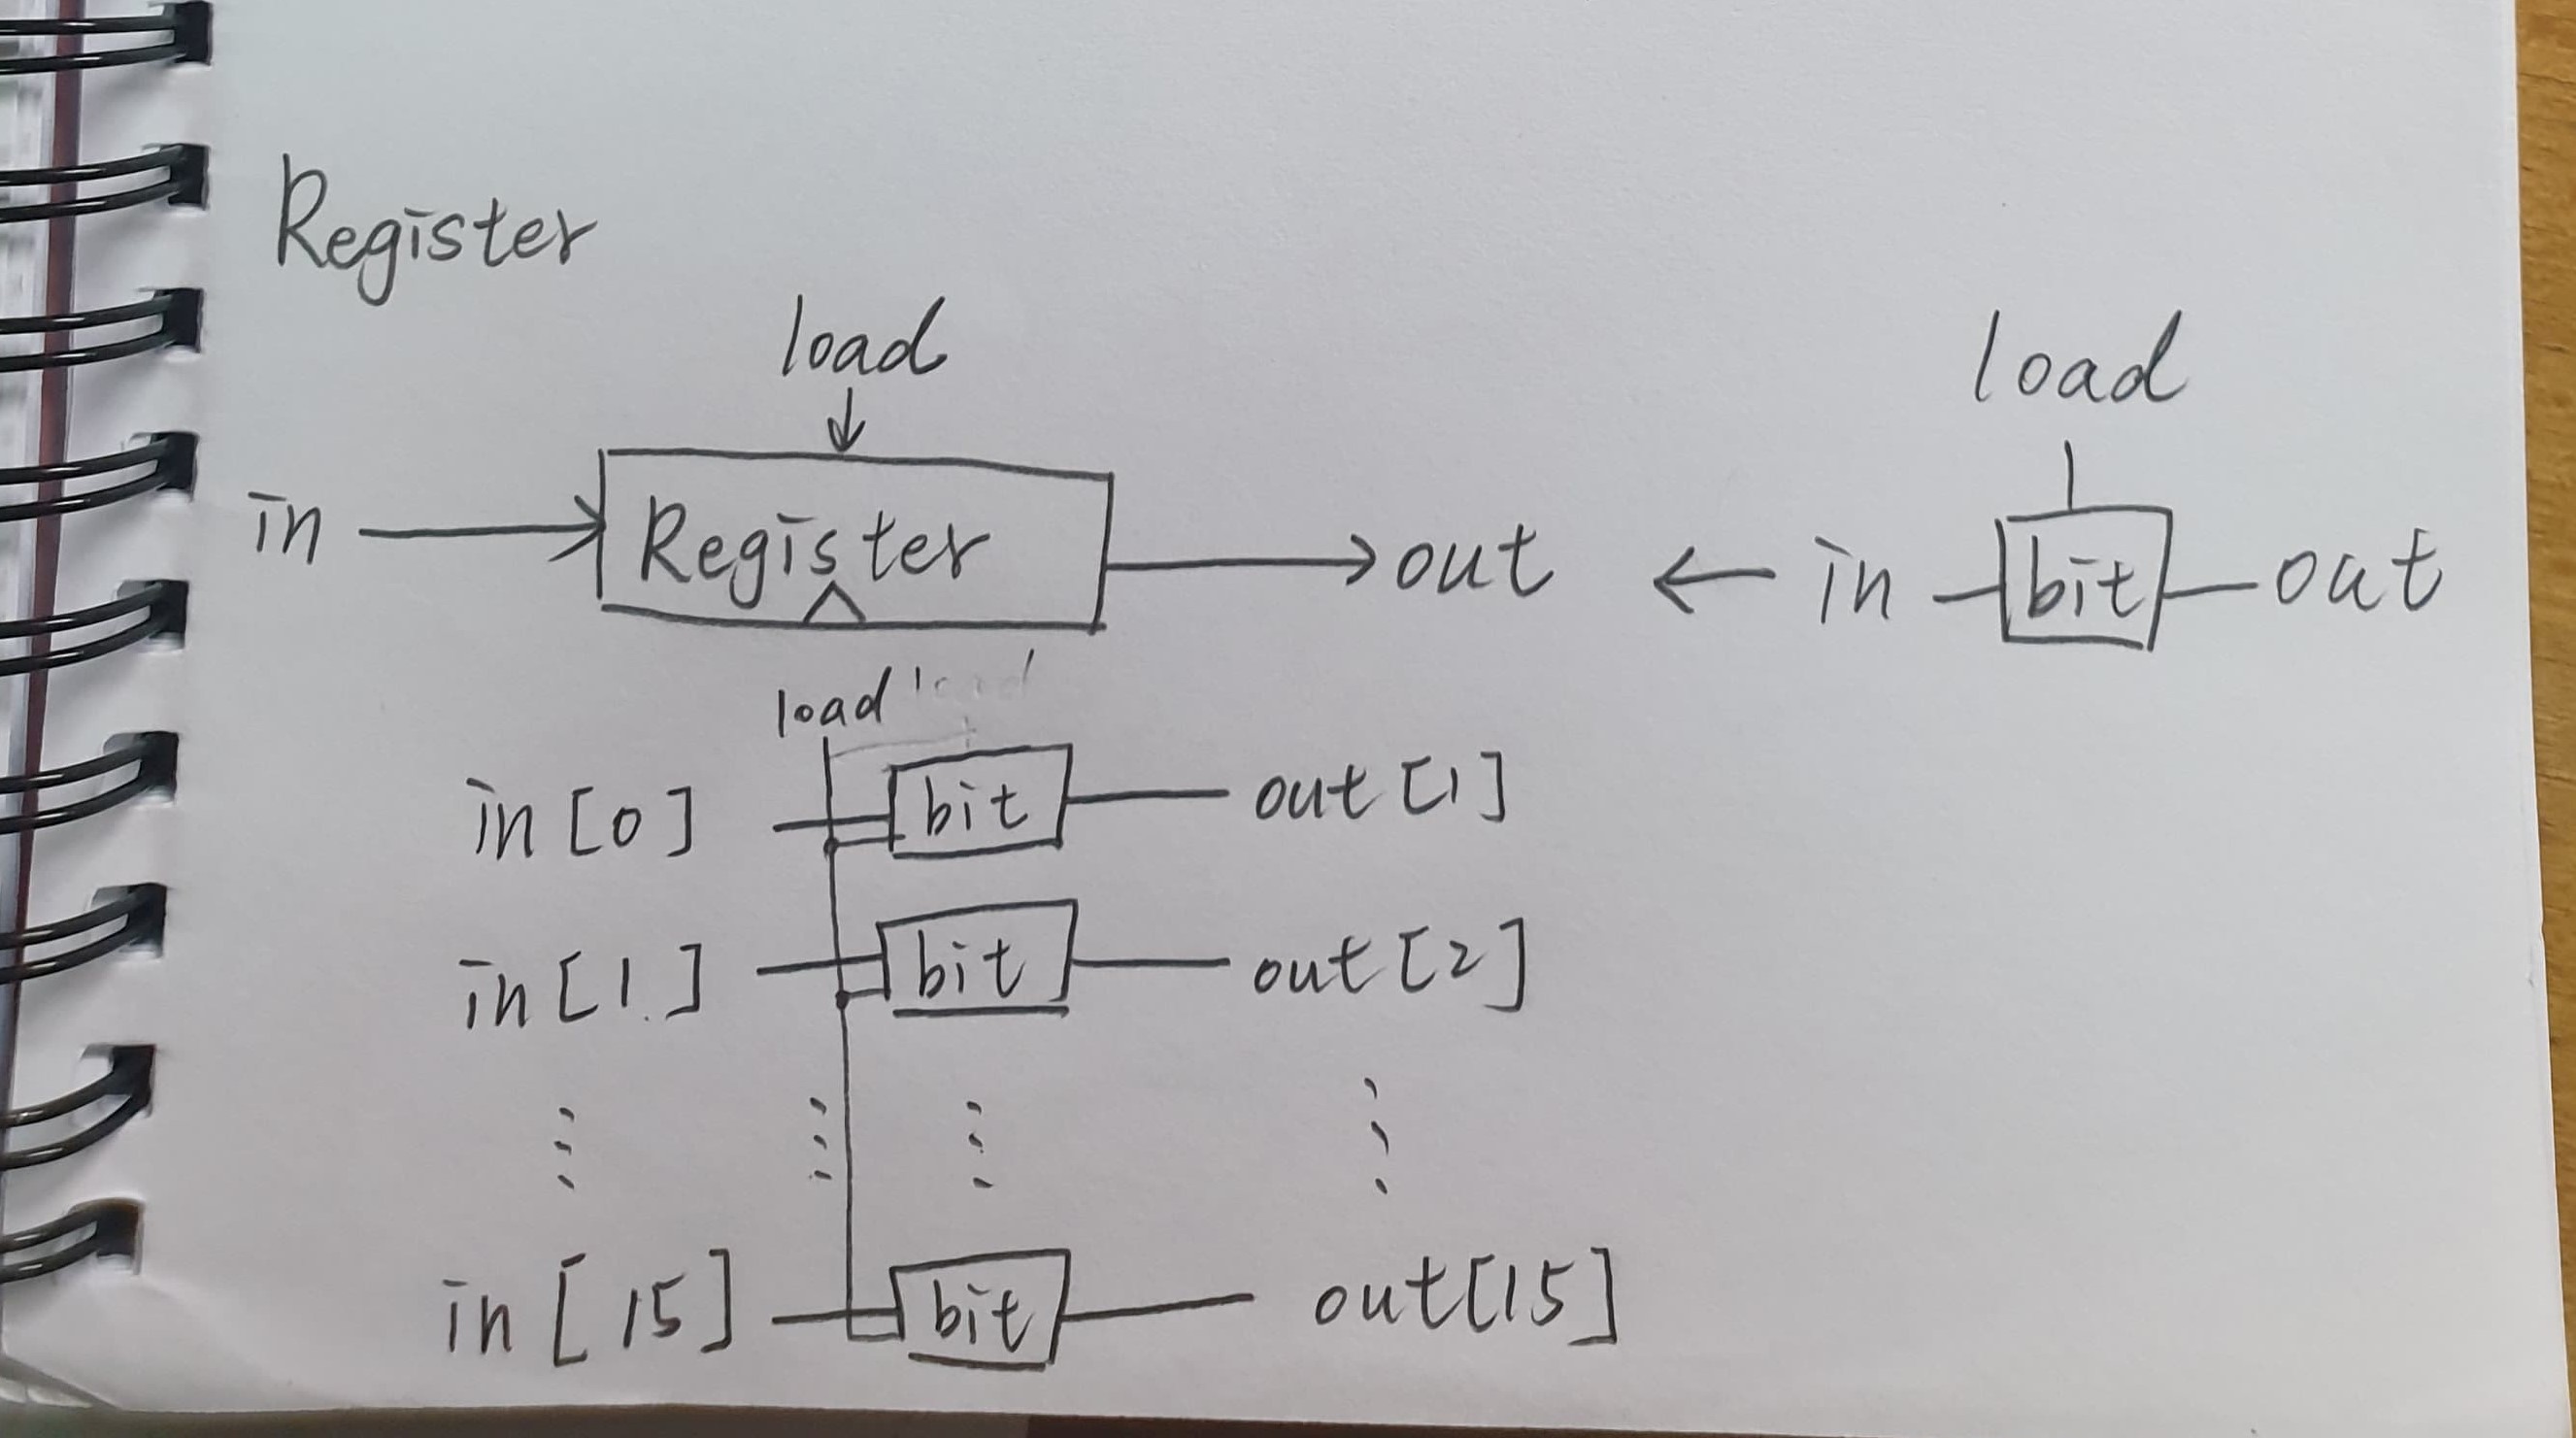 Register
load
load
in
Register
out
in
bit
out
load
in [0]
bit
out [1]
in [1]
bit
out [2]
in [15]
bit
out [15]